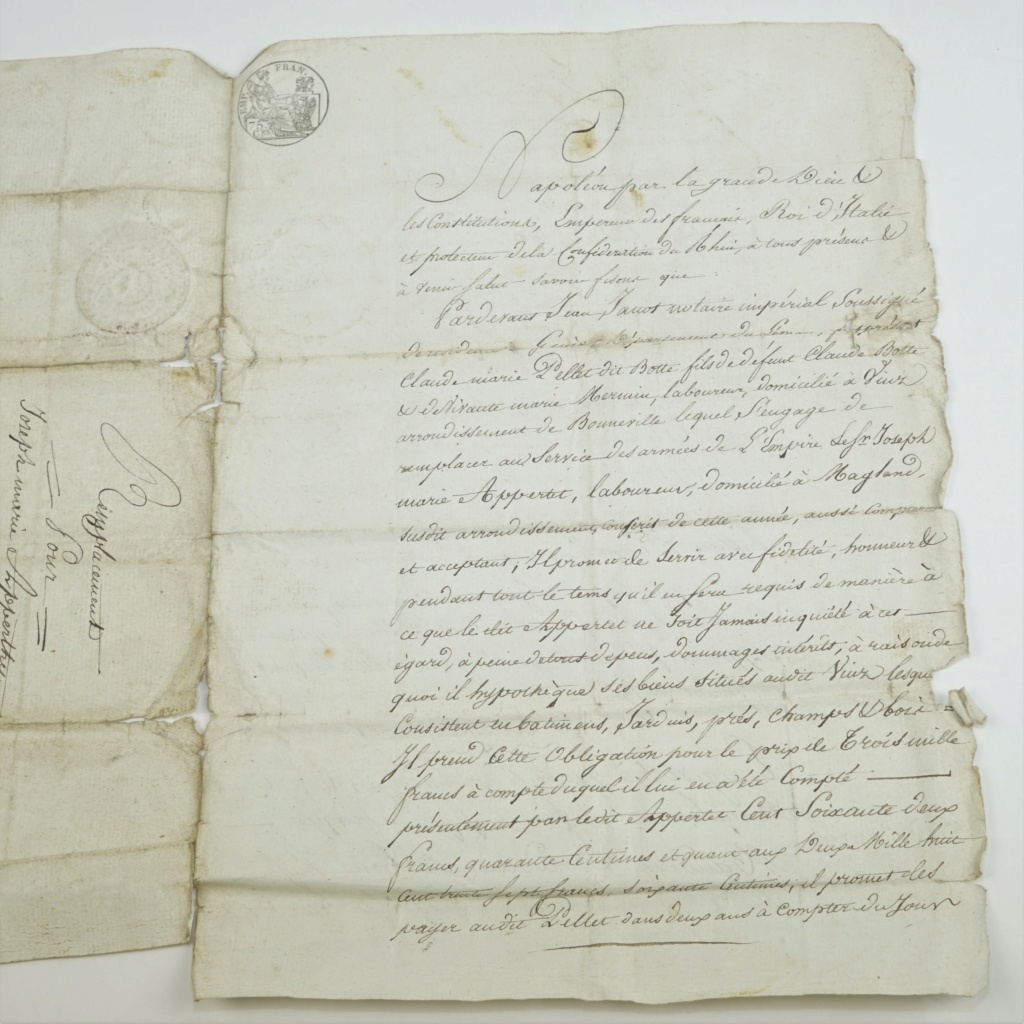 EMP. FRAN.
Napoléon par la grace de Dieu &
les Constitutions, Empereur des francais, Roi d'Italie
et protecteur de la Confédération du Rhin, à tous présens &
à venir Salut savoir fesons que
Pardevant Jean Janot notaire impérial Soussigné
de résidence à Genève Département du Léman, fut présent
Claude marie Pellet dit Botte fils de défunt Claude Botte
& de Vivante marie Mermin, laboureur, domicilié à Viuz
arrondissement de Bonneville lequel S'engage de
remplacer au Service des armées de L'Empire Le Sr Joseph
marie Appertet, laboureur, domicilié à Magland,
susdit arrondissement, conscrit de cette année, aussi Comparu
et acceptant; Il promet de Servir avec fidélité, honneur &
pendant tout le tems qu'il en Sera requis de manière à
ce que le dit Appertet ne Soit Jamais inquiété à cet
égard, à peine de tous depens, dommages intérets, à raison de
quoi il hypothèque ses biens situés audit Viuz lesquels
Consistent en batimens, Jardins, prés, Champs & bois =
Il prend Cette Obligation pour le prix de Trois mille
francs à compte duquel il lui en a été Compté
présentement par ledit Appertet Cent Soixante deux
francs, quarante Centimes et quant aux Deux Mille huit
cent trente sept francs, soixante Centimes, il promet les
payer audit Pellet dans deux ans à Compter du Jour
Remplacement
Pour
Joseph marie Apperthet